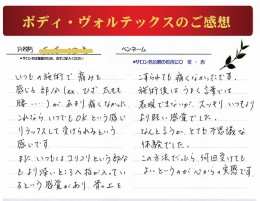 ボディ・ヴォルテックスのご感想
お名前
ペンネーム
いつもの施術で痛みを
感じる部分(ex. ひざ 太もも
腰……)が あまり痛くなかった
これなら いつでもOKという感じ
リラックスして受けられるという
感じです
また いつもはコリコリという部分
もより深いところへ指が入ってい
るという感覚があり 骨の上を
こすられても痛くなかったです。
施術後は うまく言葉では
表現できないが、スッキリ いつもより
より軽い感覚でした。
なんと言うか、とても不思議な
体験でした。
この方法だったら 何回受けても
よいというのが 心からの実感です。